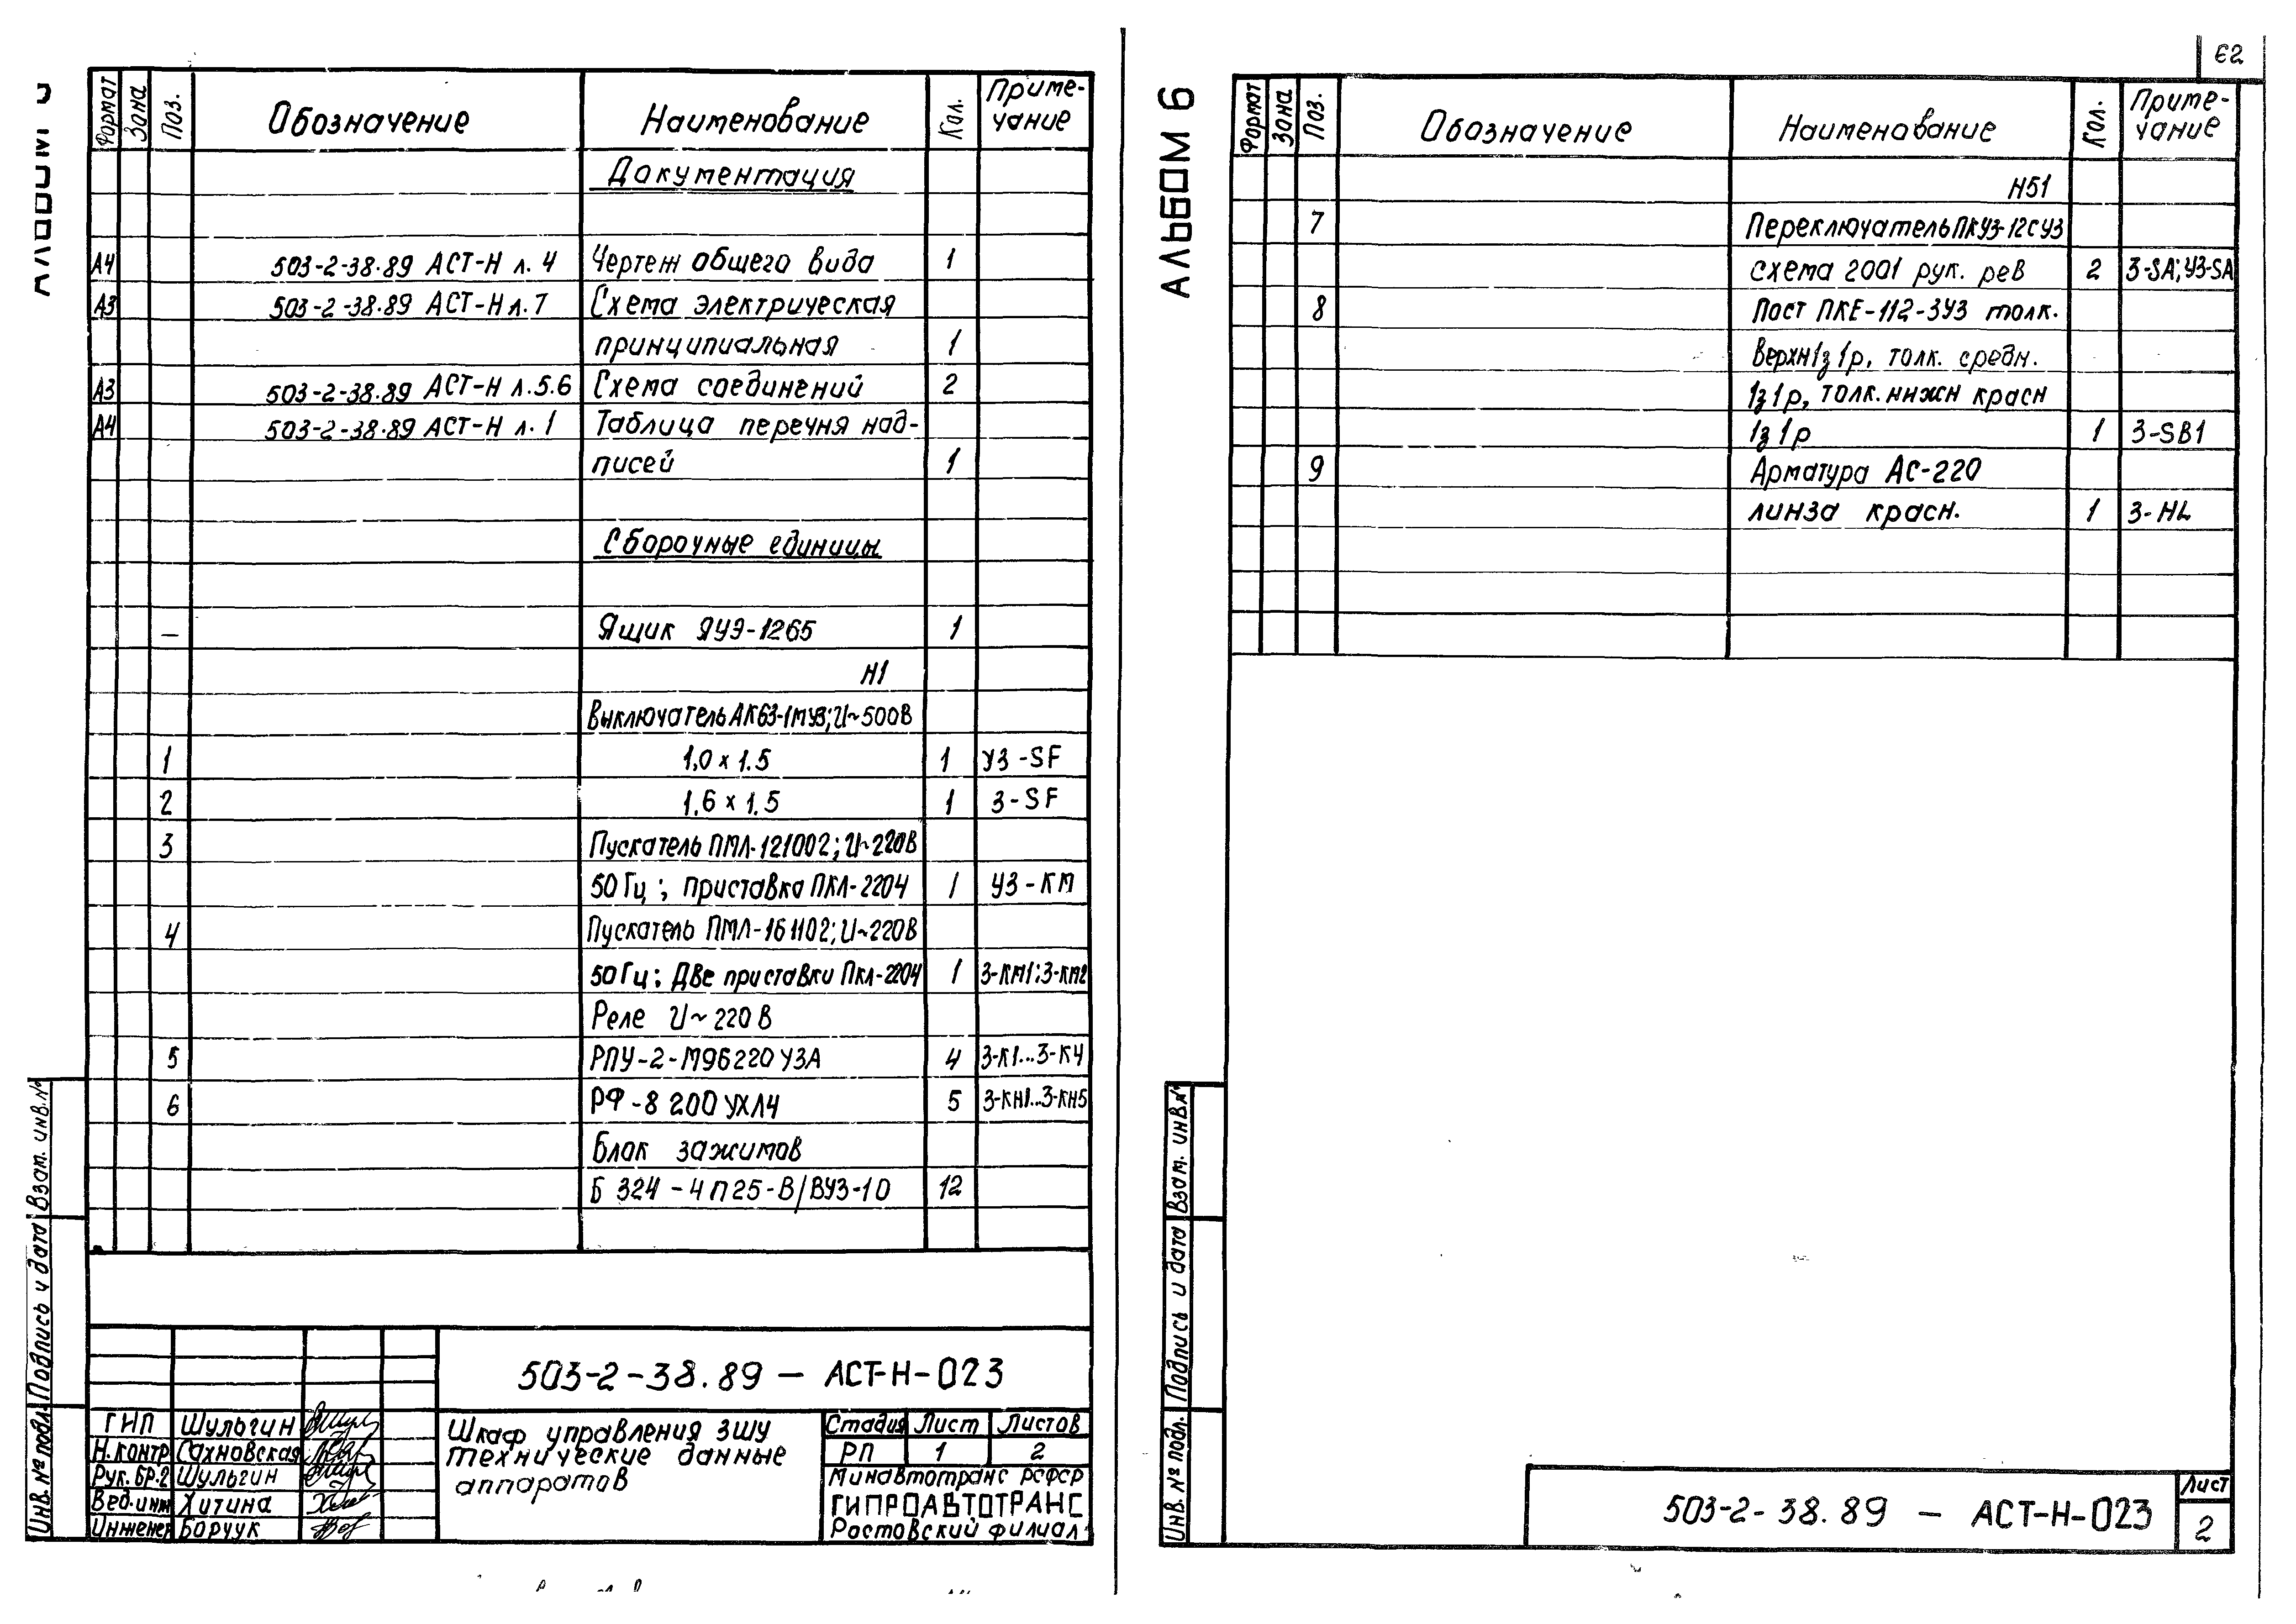 Формат Зона Поз. Обозначение Наименование Кол. Приме-
чание
Документация
А4 503-2-38.89 АСТ-Н л. 4 Чертеж общего вида 1
А3 503-2-38.89 АСТ-Н л. 7 Схема электрическая
принципиальная 1
А3 503-2-38.89 АСТ-Н л. 5.6 Схема соединений 2
А4 503-2-38.89 АСТ-Н л. 1 Таблица перечня над-
писей 1
Сборочные единицы
— Ящик ЯУЭ-1265 1
Н1
Выключатель АК63-1МУ3; U~500В
1 1,0 х 1.5 1 У3-SF
2 1,6 х 1,5 1 3-SF
3 Пускатель ПМЛ-121002; U~220В
50 Гц ; приставка ПКЛ-2204 1 У3-КМ
4 Пускатель ПМЛ-161102; U~220В
50 Гц ; Две приставки ПКЛ-2204 1 3-КМ1; 3-КМ2
Реле U~220 В
5 РПУ-2-М96220 У3А 4 3-К1...3-К4
6 РФ-8 200 УХЛ4 5 3-КН1...3-КН5
Блок зажимов
Б 324-4П25-В/ВУ3-10 12
Взам. инв. №
Подпись и дата
Инв. № подл.
503-2-38.89 — АСТ-Н-023
ГИП Шульгин
Н.контр Сахновская
Рук. БР.2 Шульгин
Вед.инж Хитина
Инженер Борчук
Шкаф управления 3ШУ
технические данные
аппаратов
Стадия Лист Листов
РП 1 2
Минавтотранс РСФСР
ГИПРОАВТОТРАНС
Ростовский филиал
АЛЬБОМ 6
62
Формат Зона Поз. Обозначение Наименование Кол. Приме-
чание
Н51
7 Переключатель ПКУ3-12С У3
схема 2001 рук. рев 2 3-SA; У3-SA
8 Пост ПКЕ-112-3У3 толк.
верхн 1з 1р, толк. средн.
1з 1р, толк. нижн красн
1з 1р 1 3-SB1
9 Арматура АС-220
линза красн. 1 3-HL
Взам. инв. №
Подпись и дата
Инв. № подл.
503-2-38.89 — АСТ-Н-023
Лист
2